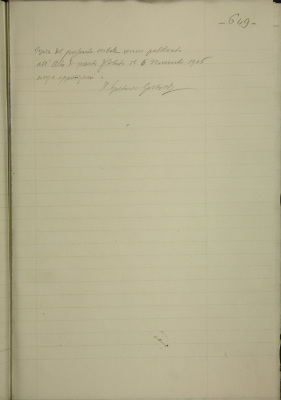 -649-
Copia del presente verbale venne pubblicata
all'Albo di questo Istituto il 6 Novembre 1926
senza opposizioni
Il Segretario